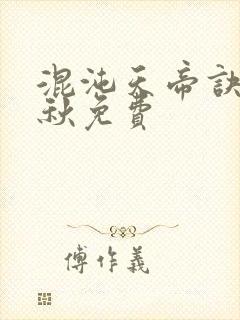 混沌天帝訣
秋免費
傅作義